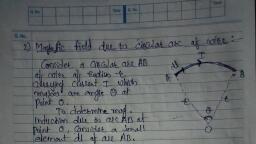 2) Magnetic field due to circular arc of wire :
Consider a circular arc AB
of wire of radius r
carrying current I which
makes an angle θ at
point O.
To determine mag.
Induction due to arc AB at
point O, Consider a small
element dl of arc AB.
dl
B
r
r
θ
O